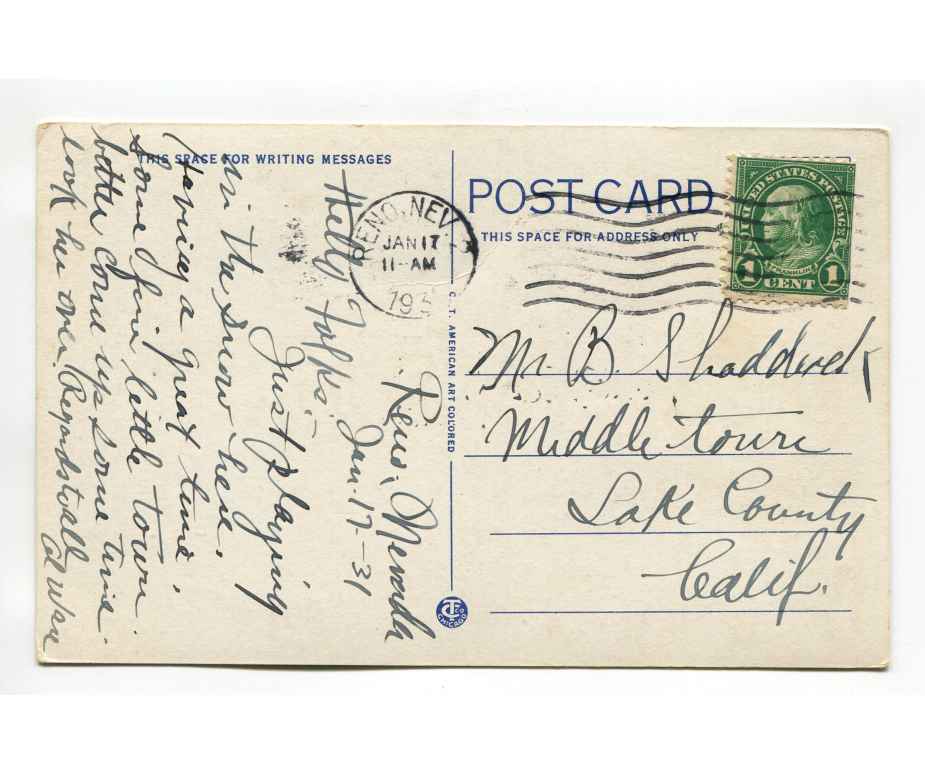 THIS SPACE FOR WRITING MESSAGES
POST CARD
THIS SPACE FOR ADDRESS ONLY
UNITED STATES POSTAGE
FRANKLIN
1 CENT 1
RENO, NEV
JAN 17
11-AM
193
C. T. AMERICAN ART COLORED
CHICAGO
Reno, Nevada
Jan. 17-31
Hello Folks:
Just playing
in the snow here.
Having a great time.
Some fine little town.
better come up some time
look her over. Regards to all
Mr. B. Shadduck
Middletown
Lake County
Calif.